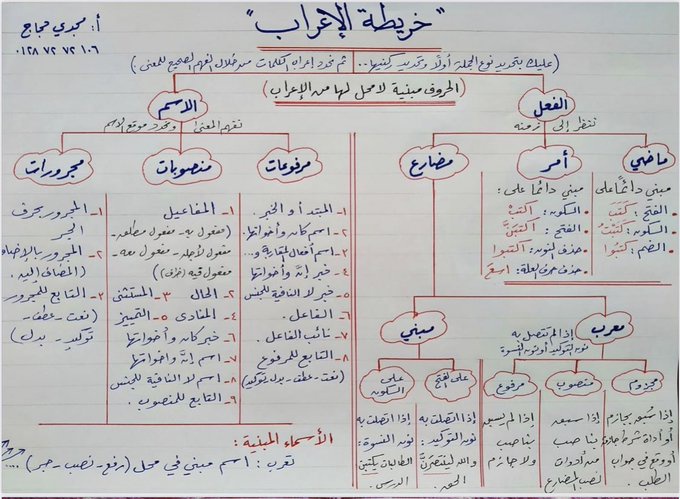 "خريطة الإعراب"
أ: مجدي حجاج
٠١٢٨ ٧٢ ٧٢ ١٠٦
(عليك بتحديد نوع الجملة أولًا وتحديد ركنيها.. ثم تحدد إعراب الكلمات من خلال الفهم الصحيح للمعنى)
(الحروف مبنية لا محل لها من الإعراب)
الفعل
ننظر إلى زمنه
ماضي
مبني دائمًا على
الفتح: كَتَبَ
السكون: كَتَبْتُ
الضم: كَتَبُوا
أمر
مبني دائمًا على:
السكون: اكتبْ
الفتح: اكتبَنَّ
حذف النون: اكتبوا
حذف حرف العلة: اسعَ
مضارع
معرب
إذا لم تتصل به
نون التوكيد أو نون النسوة
مجزوم
إذا سُبق بجازم
أو أداة شرط جازمة
أو وقع في جواب
الطلب.
منصوب
إذا سبقه
ناصب
من أدوات
نصب المضارع
مرفوع
إذا لم يسبقه
ناصب
ولا جازم
مبني
على الفتح
إذا اتصلت به
نون التوكيد:
والله لينتصرَنَّ
الحق.
على السكون
إذا اتصلت به
نون النسوة:
الطالبات يكتبْنَ
الدرس.
الاسم
نفهم المعنى ونحدد موقع الاسم
مرفوعات
١- المبتدأ والخبر.
٢- اسم كان وأخواتها.
٣- اسم أفعال المقاربة و...
٤- خبر إنَّ وأخواتها
٥- خبر لا النافية للجنس
٦- الفاعل.
٧- نائب الفاعل.
٨- التابع للمرفوع
(نعت - عطف - بدل - توكيد)
منصوبات
١- المفاعيل
(مفعول به - مفعول مطلق -
مفعول لأجله - مفعول معه -
مفعول فيه (ظرف))
٢- الحال ٣- المستثنى
٤- المنادى ٥- التمييز
٦- خبر كان وأخواتها
٧- اسم إنَّ وأخواتها
٨- اسم لا النافية للجنس
٩- التابع للمنصوب.
مجرورات
١- المجرور بحرف
الجر
٢- المجرور بالإضافة
(المضاف إليه).
٣- التابع للمجرور
(نعت - عطف -
توكيد - بدل)
الأسماء المبنية:
تعرب: اسم مبني في محل (رفع - نصب - جر) ....